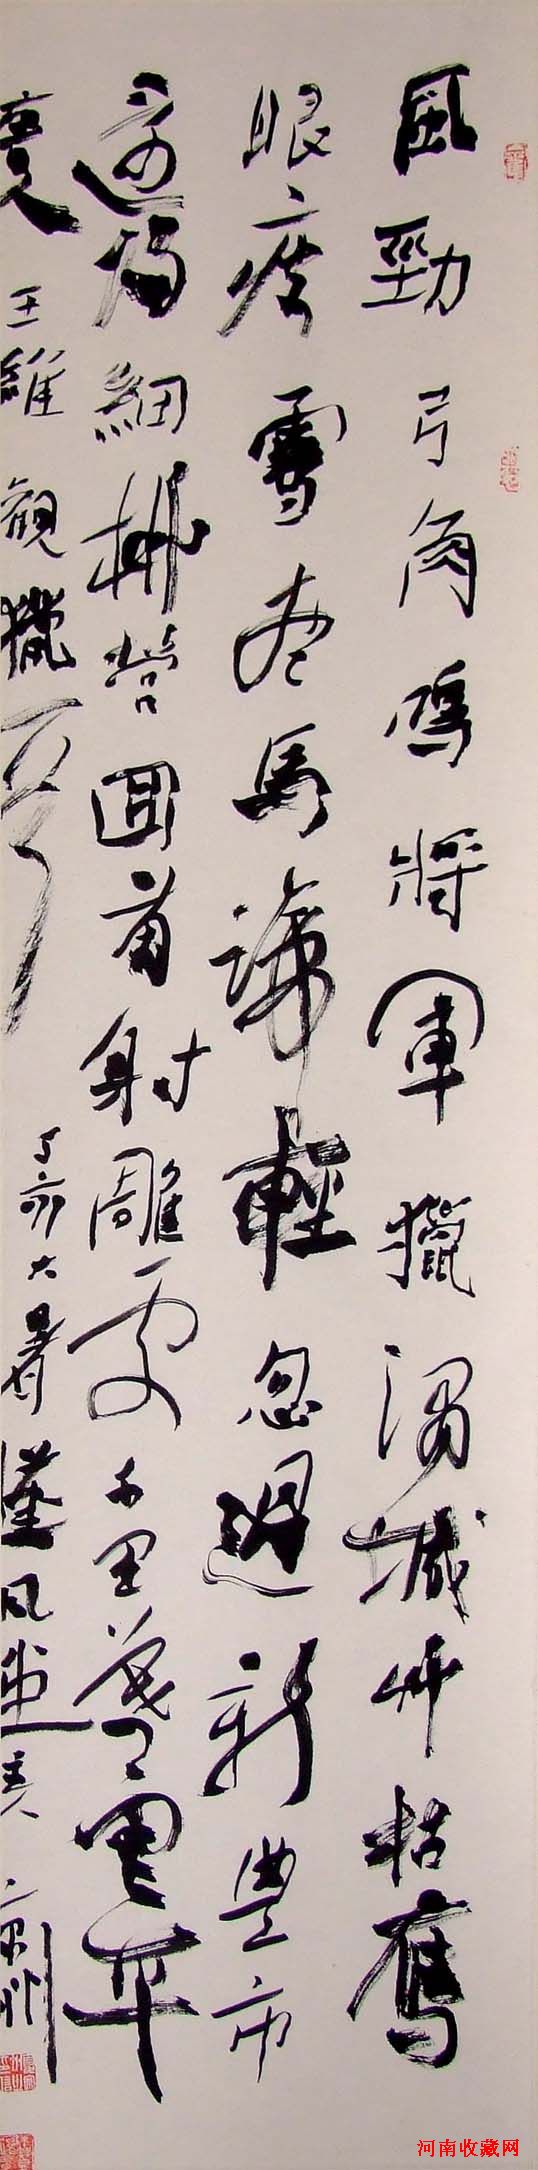 風勁弓角鳴將軍獵渭城艸枯鷹
眼疾雪盡馬蹄輕忽過新豐市
還歸細柳營回首射雕處千里暮雲平
王維觀獵 丁亥大暑 風堂主人
河南收藏网